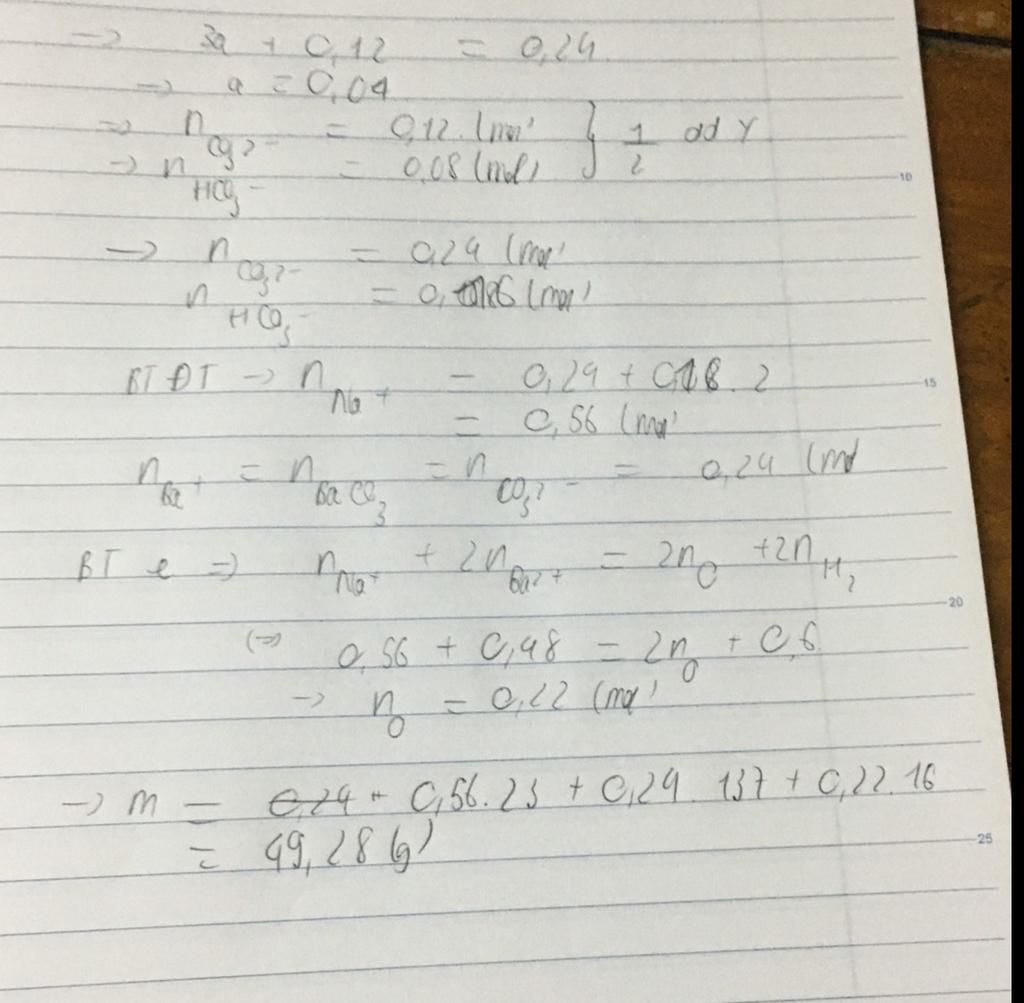 → 3a + 0,12 = 0,24
→ a = 0,04
→ n CO3 2- = 0,12 (mol) } 1/2 dd Y
→ n HCO3 - = 0,08 (mol)
→ n CO3 2- = 0,24 (mol)
n HCO3 - = 0,16 (mol)
BTĐT → n Na+ = 0,24 + 0,18.2
= 0,56 (mol)
n Ba+ = n BaCO3 = n CO3 2- = 0,24 (mol
BT e ⇒ n Na+ + 2n Ba2+ = 2n O + 2n H2
(⇒ 0,56 + 0,48 = 2n O + 0,6
→ n O = 0,22 (mol)
→ m = 0,56.23 + 0,24.137 + 0,22.16
= 49,28 (g)
10
15
20
25